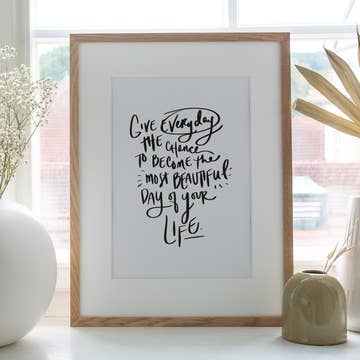 Give everyday
the chance
to become the
most beautiful
day of your
life.